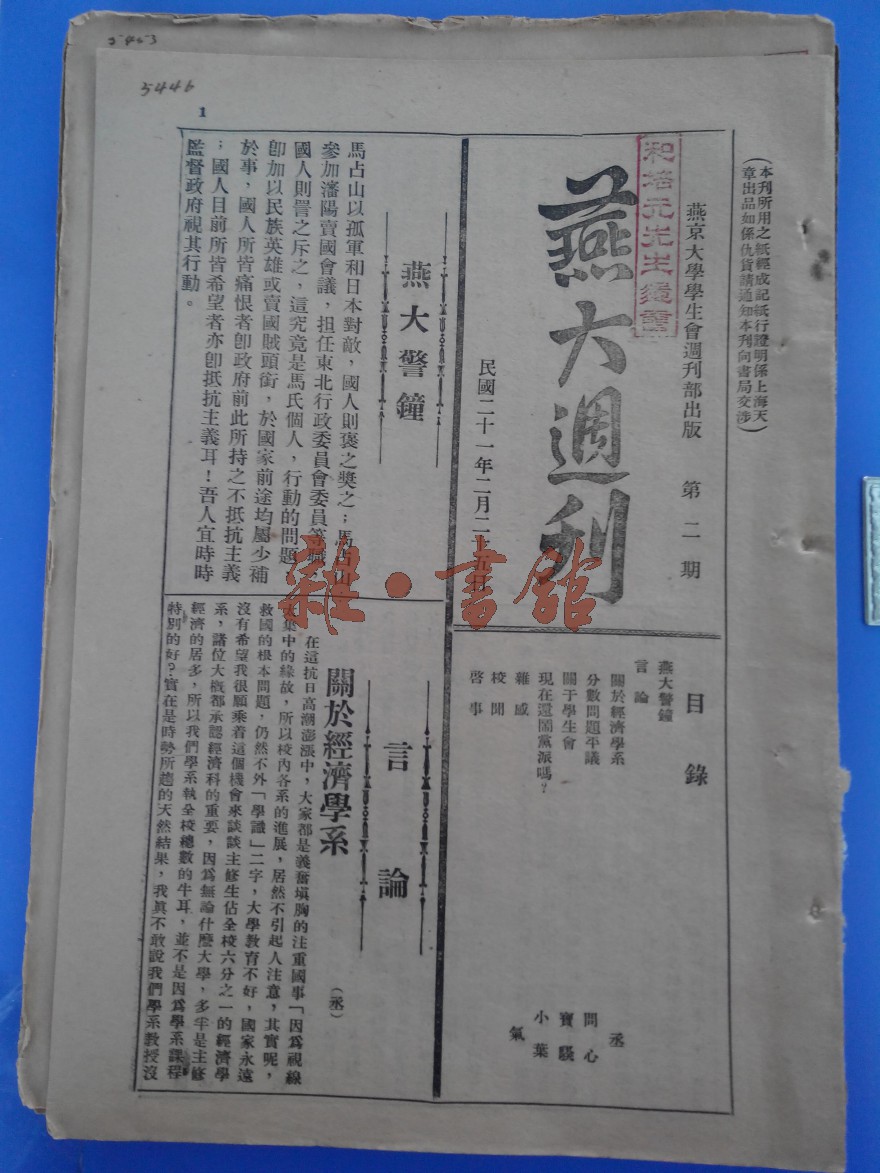 5463
5446
1
(本刊所用之紙經成記紙行證明係上海天
章出品如係仇貨請通知本刊向書局交涉)
燕京大學學生會週刊部出版 第二期
和培元先生遺書
燕大週刊
民國二十一年二月二十五日
目錄
燕大警鐘
言論
關於經濟學系 丞
分數問題平議 問心
關于學生會 寶騄
現在還鬧黨派嗎? 小葉
雜感 氣
校聞
啓事
燕大警鐘
馬占山以孤軍和日本對敵,國人則褒之獎之;馬占山
參加瀋陽賣國會議,担任東北行政委員會委員等職
國人則詈之斥之,這究竟是馬氏個人,行動的問題,
卽加以民族英雄或賣國賊頭銜,於國家前途均屬少補
於事,國人所皆痛恨者卽政府前此所持之不抵抗主義
;國人目前所皆希望者亦卽抵抗主義耳!吾人宜時時
監督政府視其行動。
言論
關於經濟學系 (丞)
在這抗日高潮澎漲中,大家都是義奮塡胸的注重國事「因爲視線
太集中的緣故,所以校内各系的進展,居然不引起人注意,其實呢,
救國的根本問題,仍然不外「學識」二字,大學敎育不好,國家永遠
沒有希望我很願乘着這個機會來談談主修生佔全校六分之一的經濟學
系,諸位大槪都承認經濟科的重要,因爲無論什麽大學,多半是主修
經濟的居多,所以我們學系執全校總數的牛耳,並不是因爲學系課程
特別的好?實在是時勢所趨的天然結果,我眞不敢說我們學系敎授沒
雜·書館